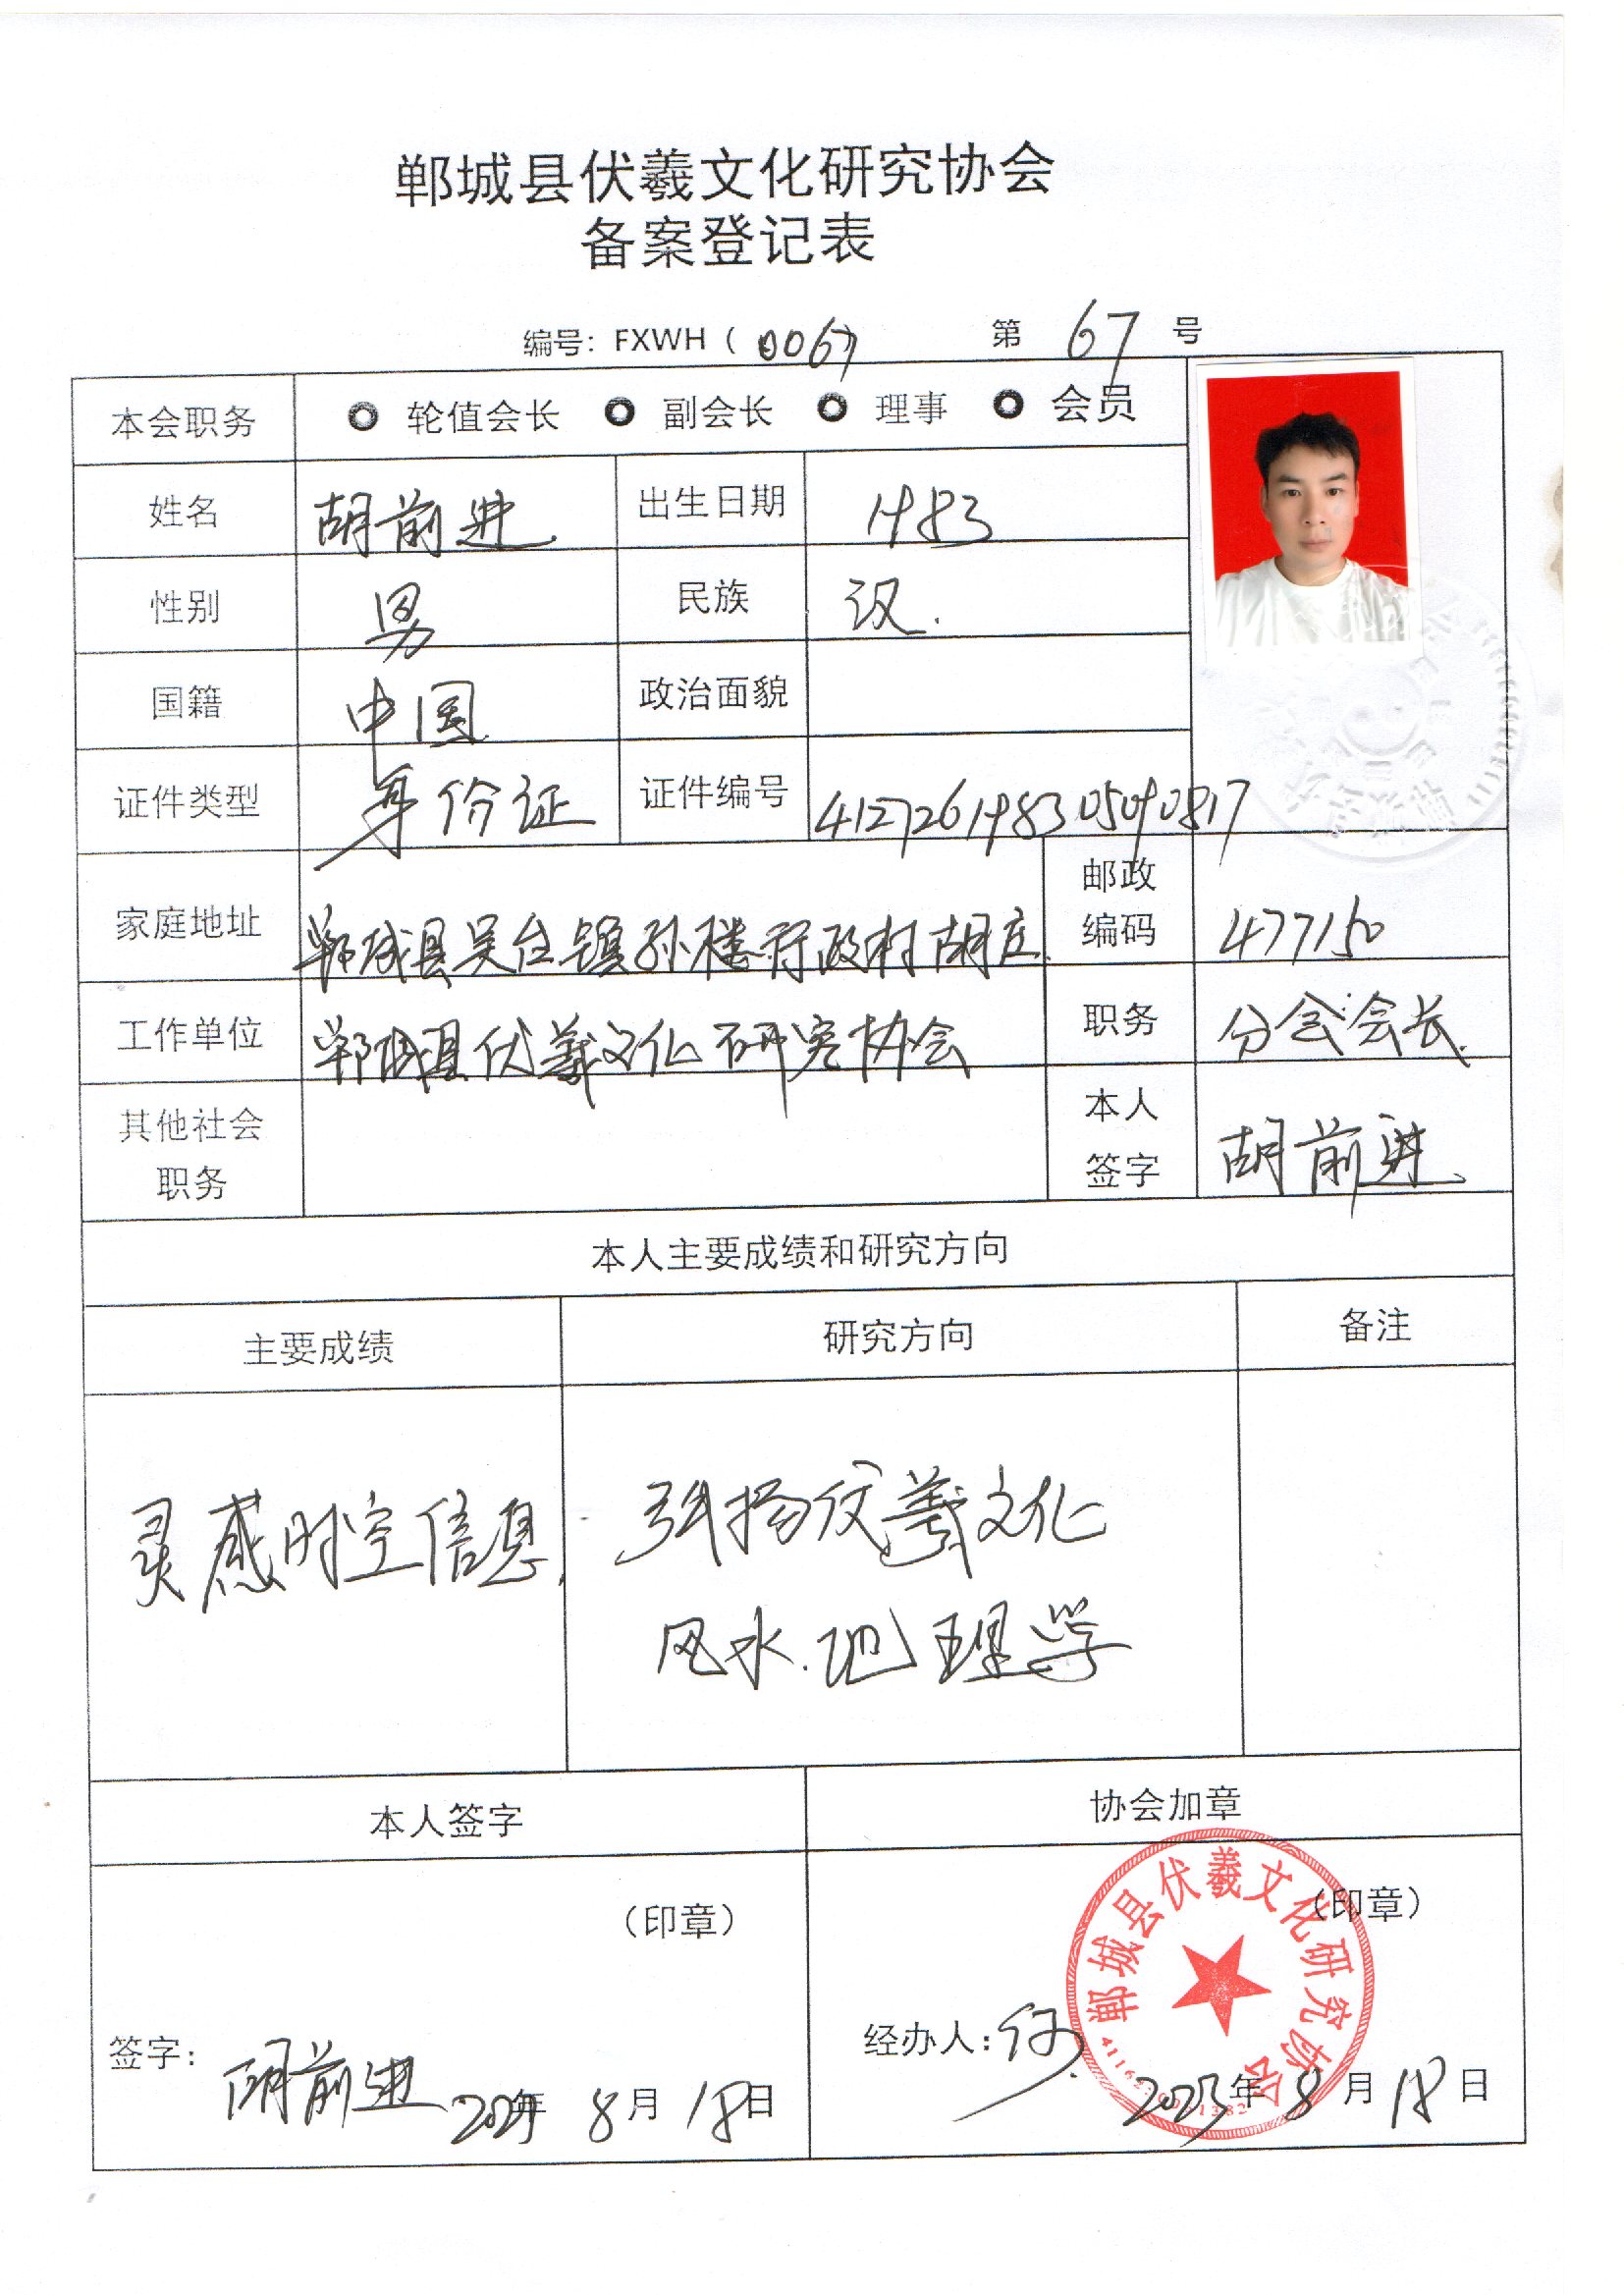 郸城县伏羲文化研究协会
备案登记表
编号：FXWH（0067） 第 67 号
本会职务 轮值会长 副会长 理事 会员
姓名 胡前进 出生日期 1983
性别 男 民族 汉.
国籍 中国 政治面貌
证件类型 身份证 证件编号 412726198305090817
家庭地址 郸城县吴台镇孙楼行政村胡庄. 邮政编码 477150
工作单位 郸城县伏羲文化研究协会 职务 分会会长.
其他社会职务 本人签字 胡前进.
本人主要成绩和研究方向
主要成绩 研究方向 备注
灵感时空信息. 弘扬伏羲文化
风水.地理学
本人签字 协会加章
（印章） （印章）
郸城县伏羲文化研究协会
签字： 胡前进 年 8月 18日 经办人： 2023年 8月 18日